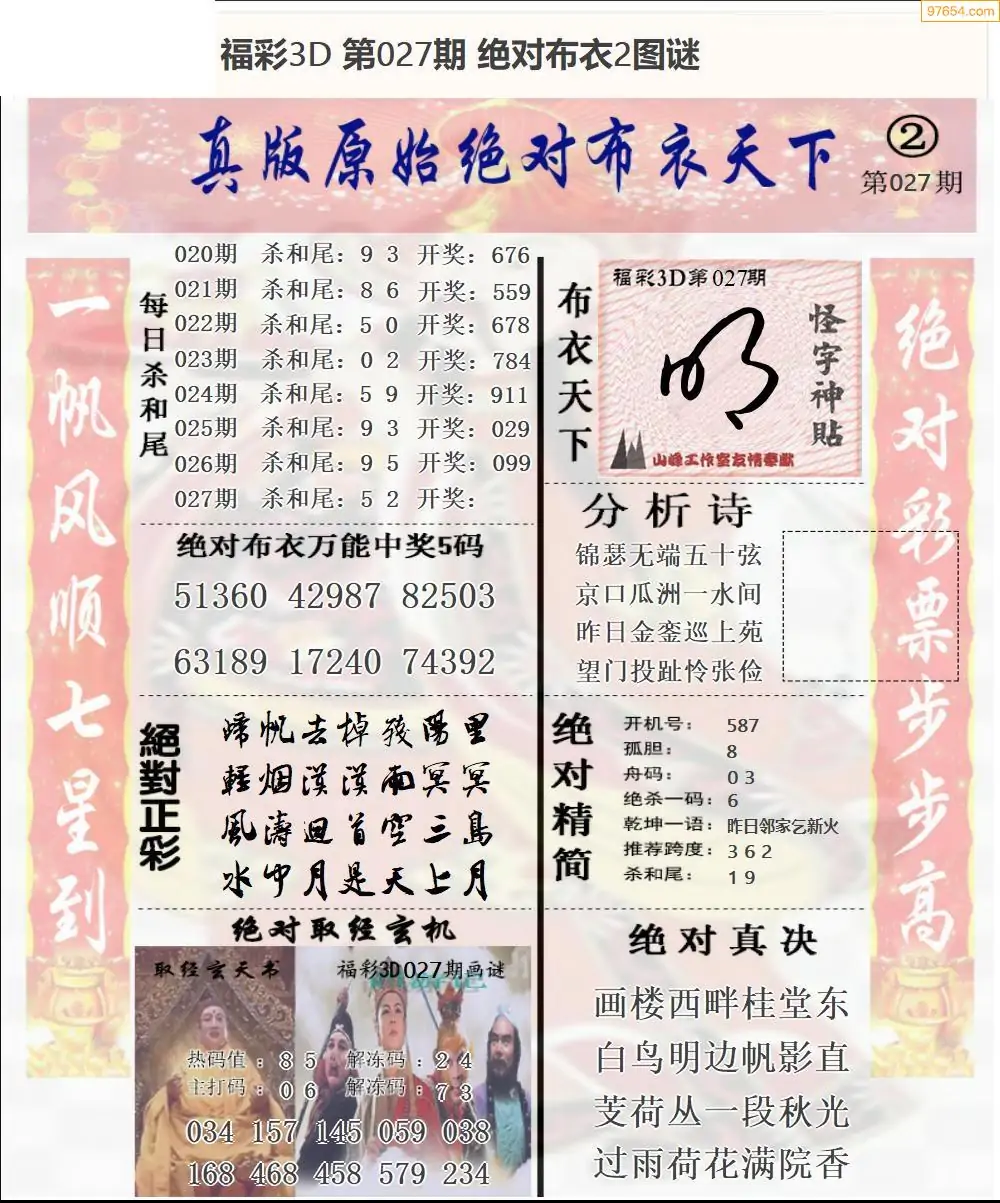 97654.com
福彩3D 第027期 绝对布衣2图谜
真版原始绝对布衣天下
②
第027期
一帆风顺七星到
每日杀和尾
020期 杀和尾：9 3 开奖：676
021期 杀和尾：8 6 开奖：559
022期 杀和尾：5 0 开奖：678
023期 杀和尾：0 2 开奖：784
024期 杀和尾：5 9 开奖：911
025期 杀和尾：9 3 开奖：029
026期 杀和尾：9 5 开奖：099
027期 杀和尾：5 2 开奖：
绝对布衣万能中奖5码
51360 42987 82503
63189 17240 74392
絕對正彩
歸帆去棹殘陽里
輕烟漠漠雨冥冥
風濤迴首空三島
水中月是天上月
绝对取经玄机
取经玄天书
福彩3D027期画谜
热码值：8 5 解冻码：2 4
主打码：0 6 解冻码：7 3
034 157 145 059 038
168 468 458 579 234
布衣天下
福彩3D第027期
怪字神貼
山峰工作室友情奉献
分析诗
锦瑟无端五十弦
京口瓜洲一水间
昨日金銮巡上苑
望门投趾怜张俭
绝对精简
开机号：587
孤胆：8
舟码：0 3
绝杀一码：6
乾坤一语：昨日邻家乞新火
推荐跨度：3 6 2
杀和尾：1 9
绝对真决
画楼西畔桂堂东
白鸟明边帆影直
芰荷丛一段秋光
过雨荷花满院香
绝对彩票步步高